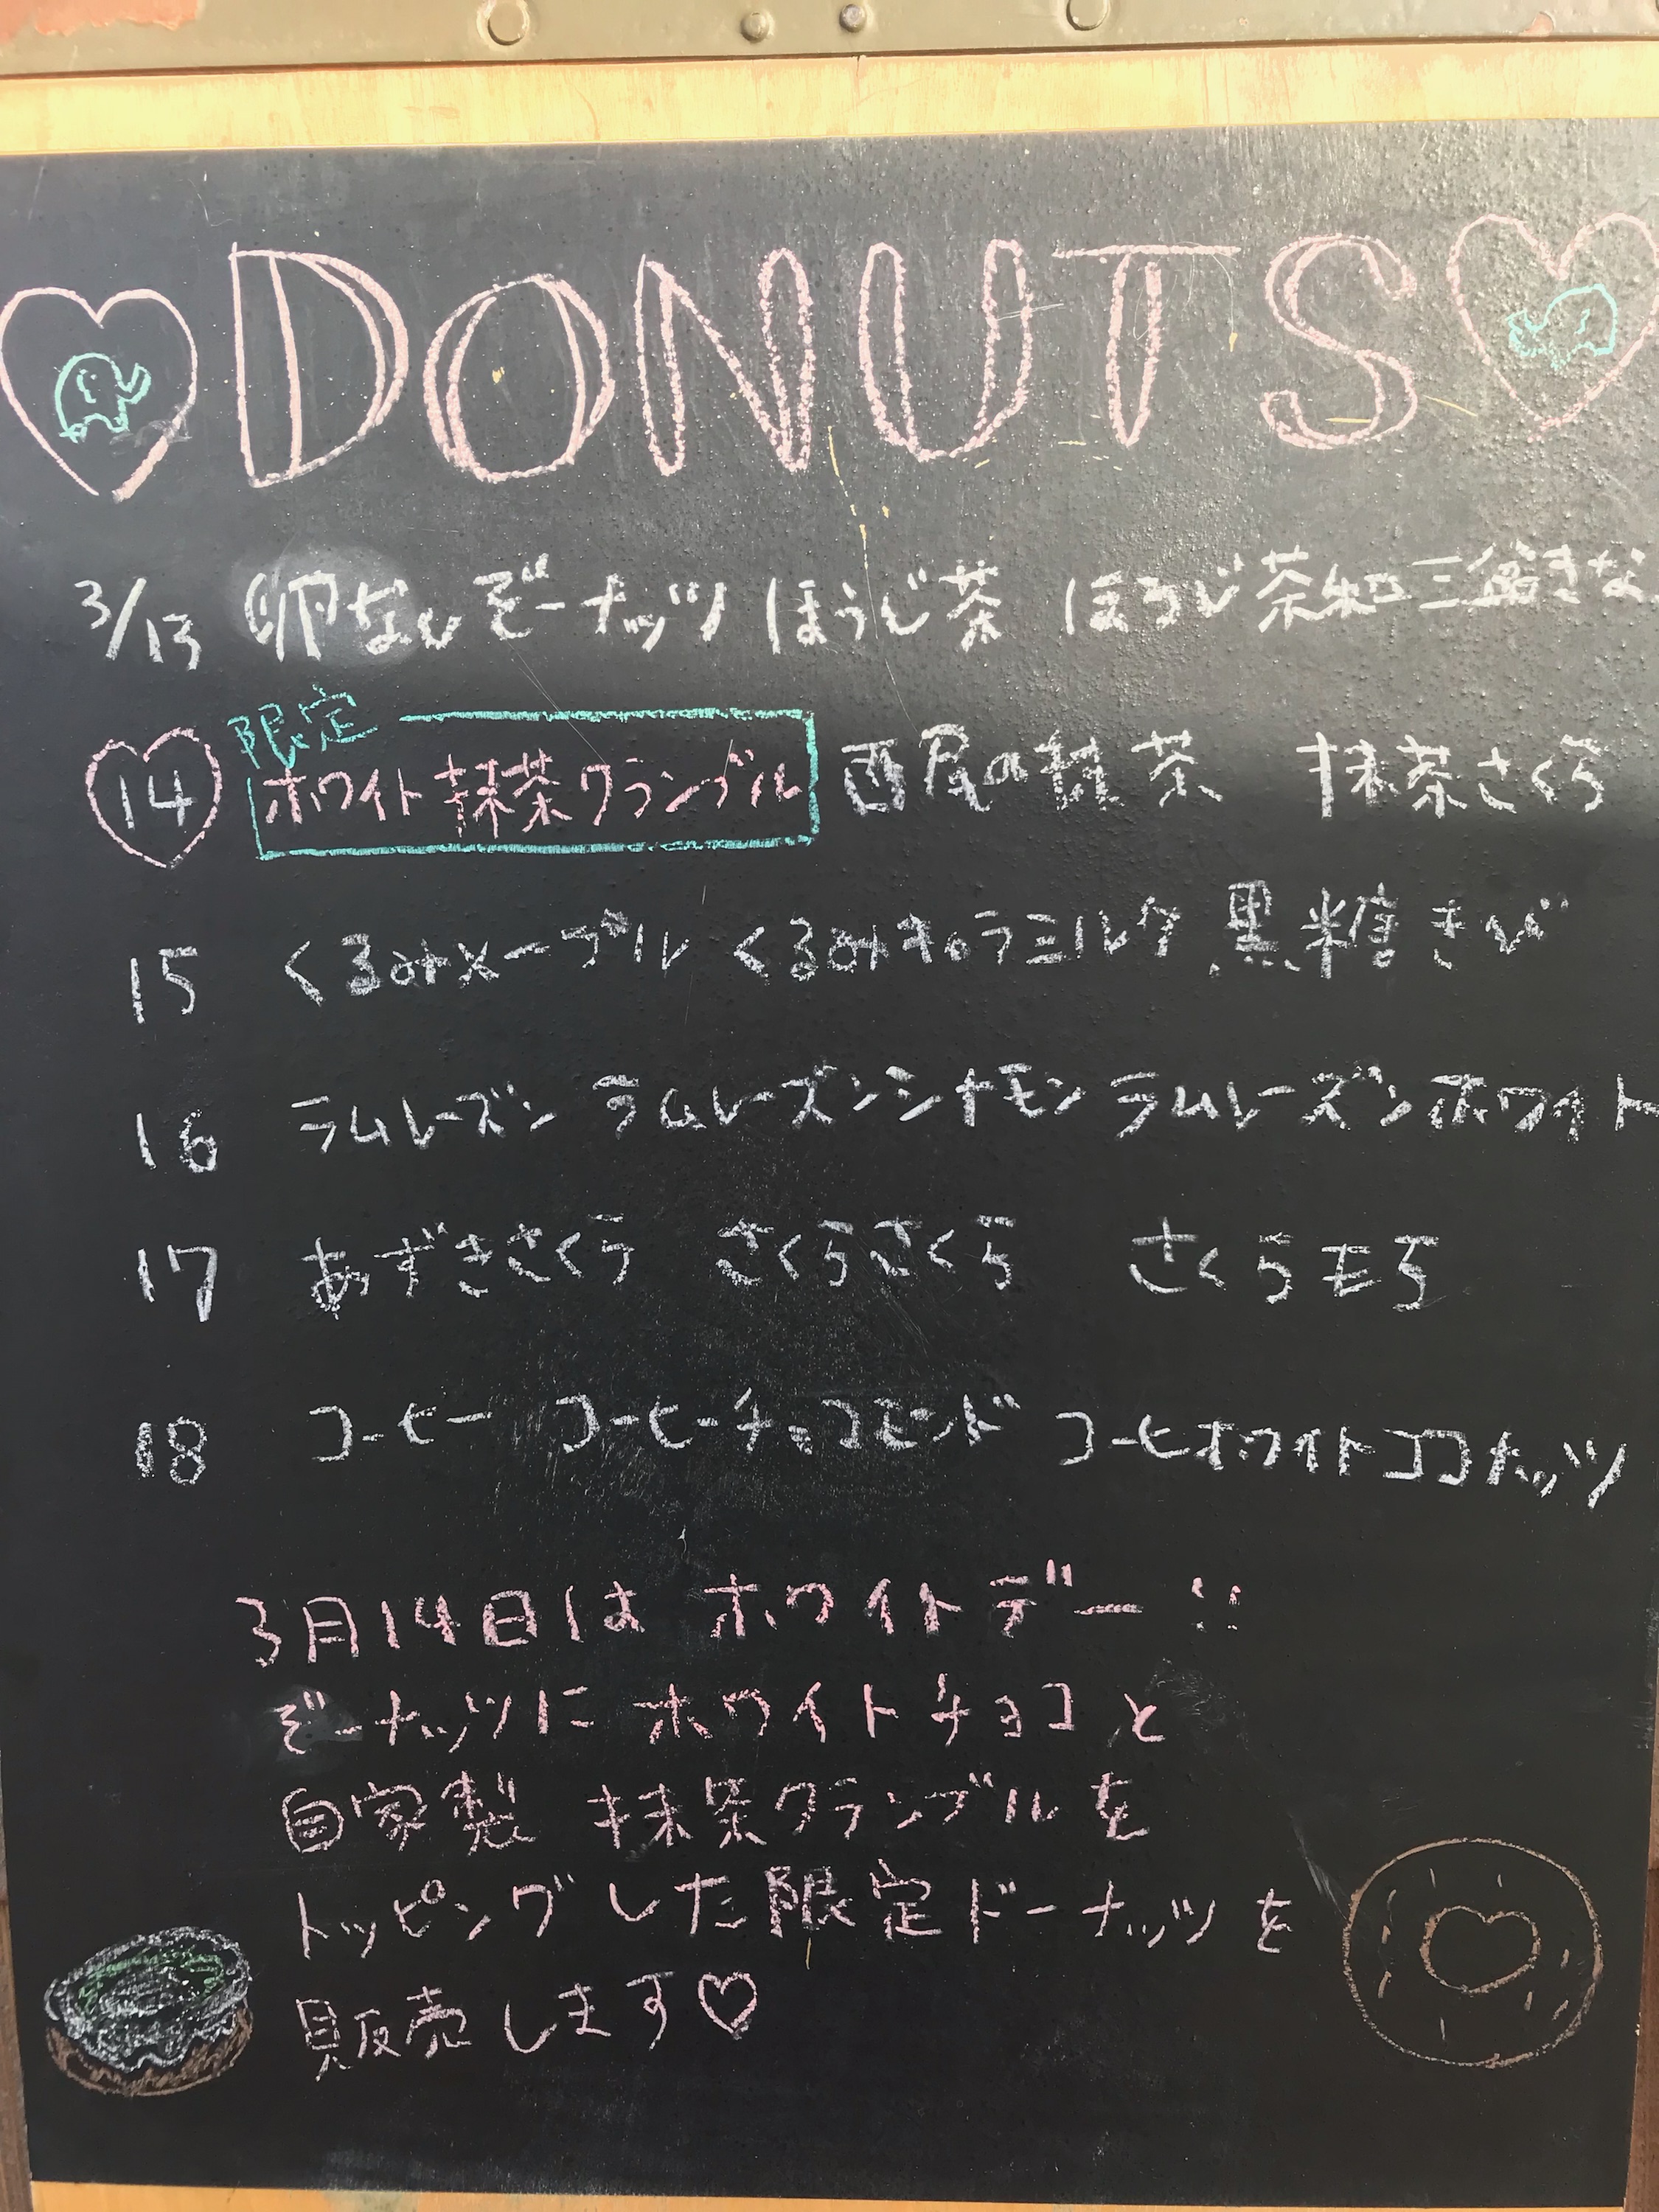 DONUTS
3/13 卵なしドーナッツ ほうじ茶 ほうじ茶和三盆きな
限定
14 ホワイト抹茶クランブル 西尾の抹茶 抹茶さくら
15 くるみメープル くるみキャラミルク 黒糖きび
16 ラムレーズン ラムレーズンシナモン ラムレーズンホワイト
17 あずきさくら さくらさくら さくらモチ
18 コーヒー コーヒーチョコモンド コーヒホワイトココナッツ
3月14日は ホワイトデー!!
ドーナッツに ホワイトチョコと
自家製 抹茶クランブルを
トッピングした限定ドーナッツを
販売します♡